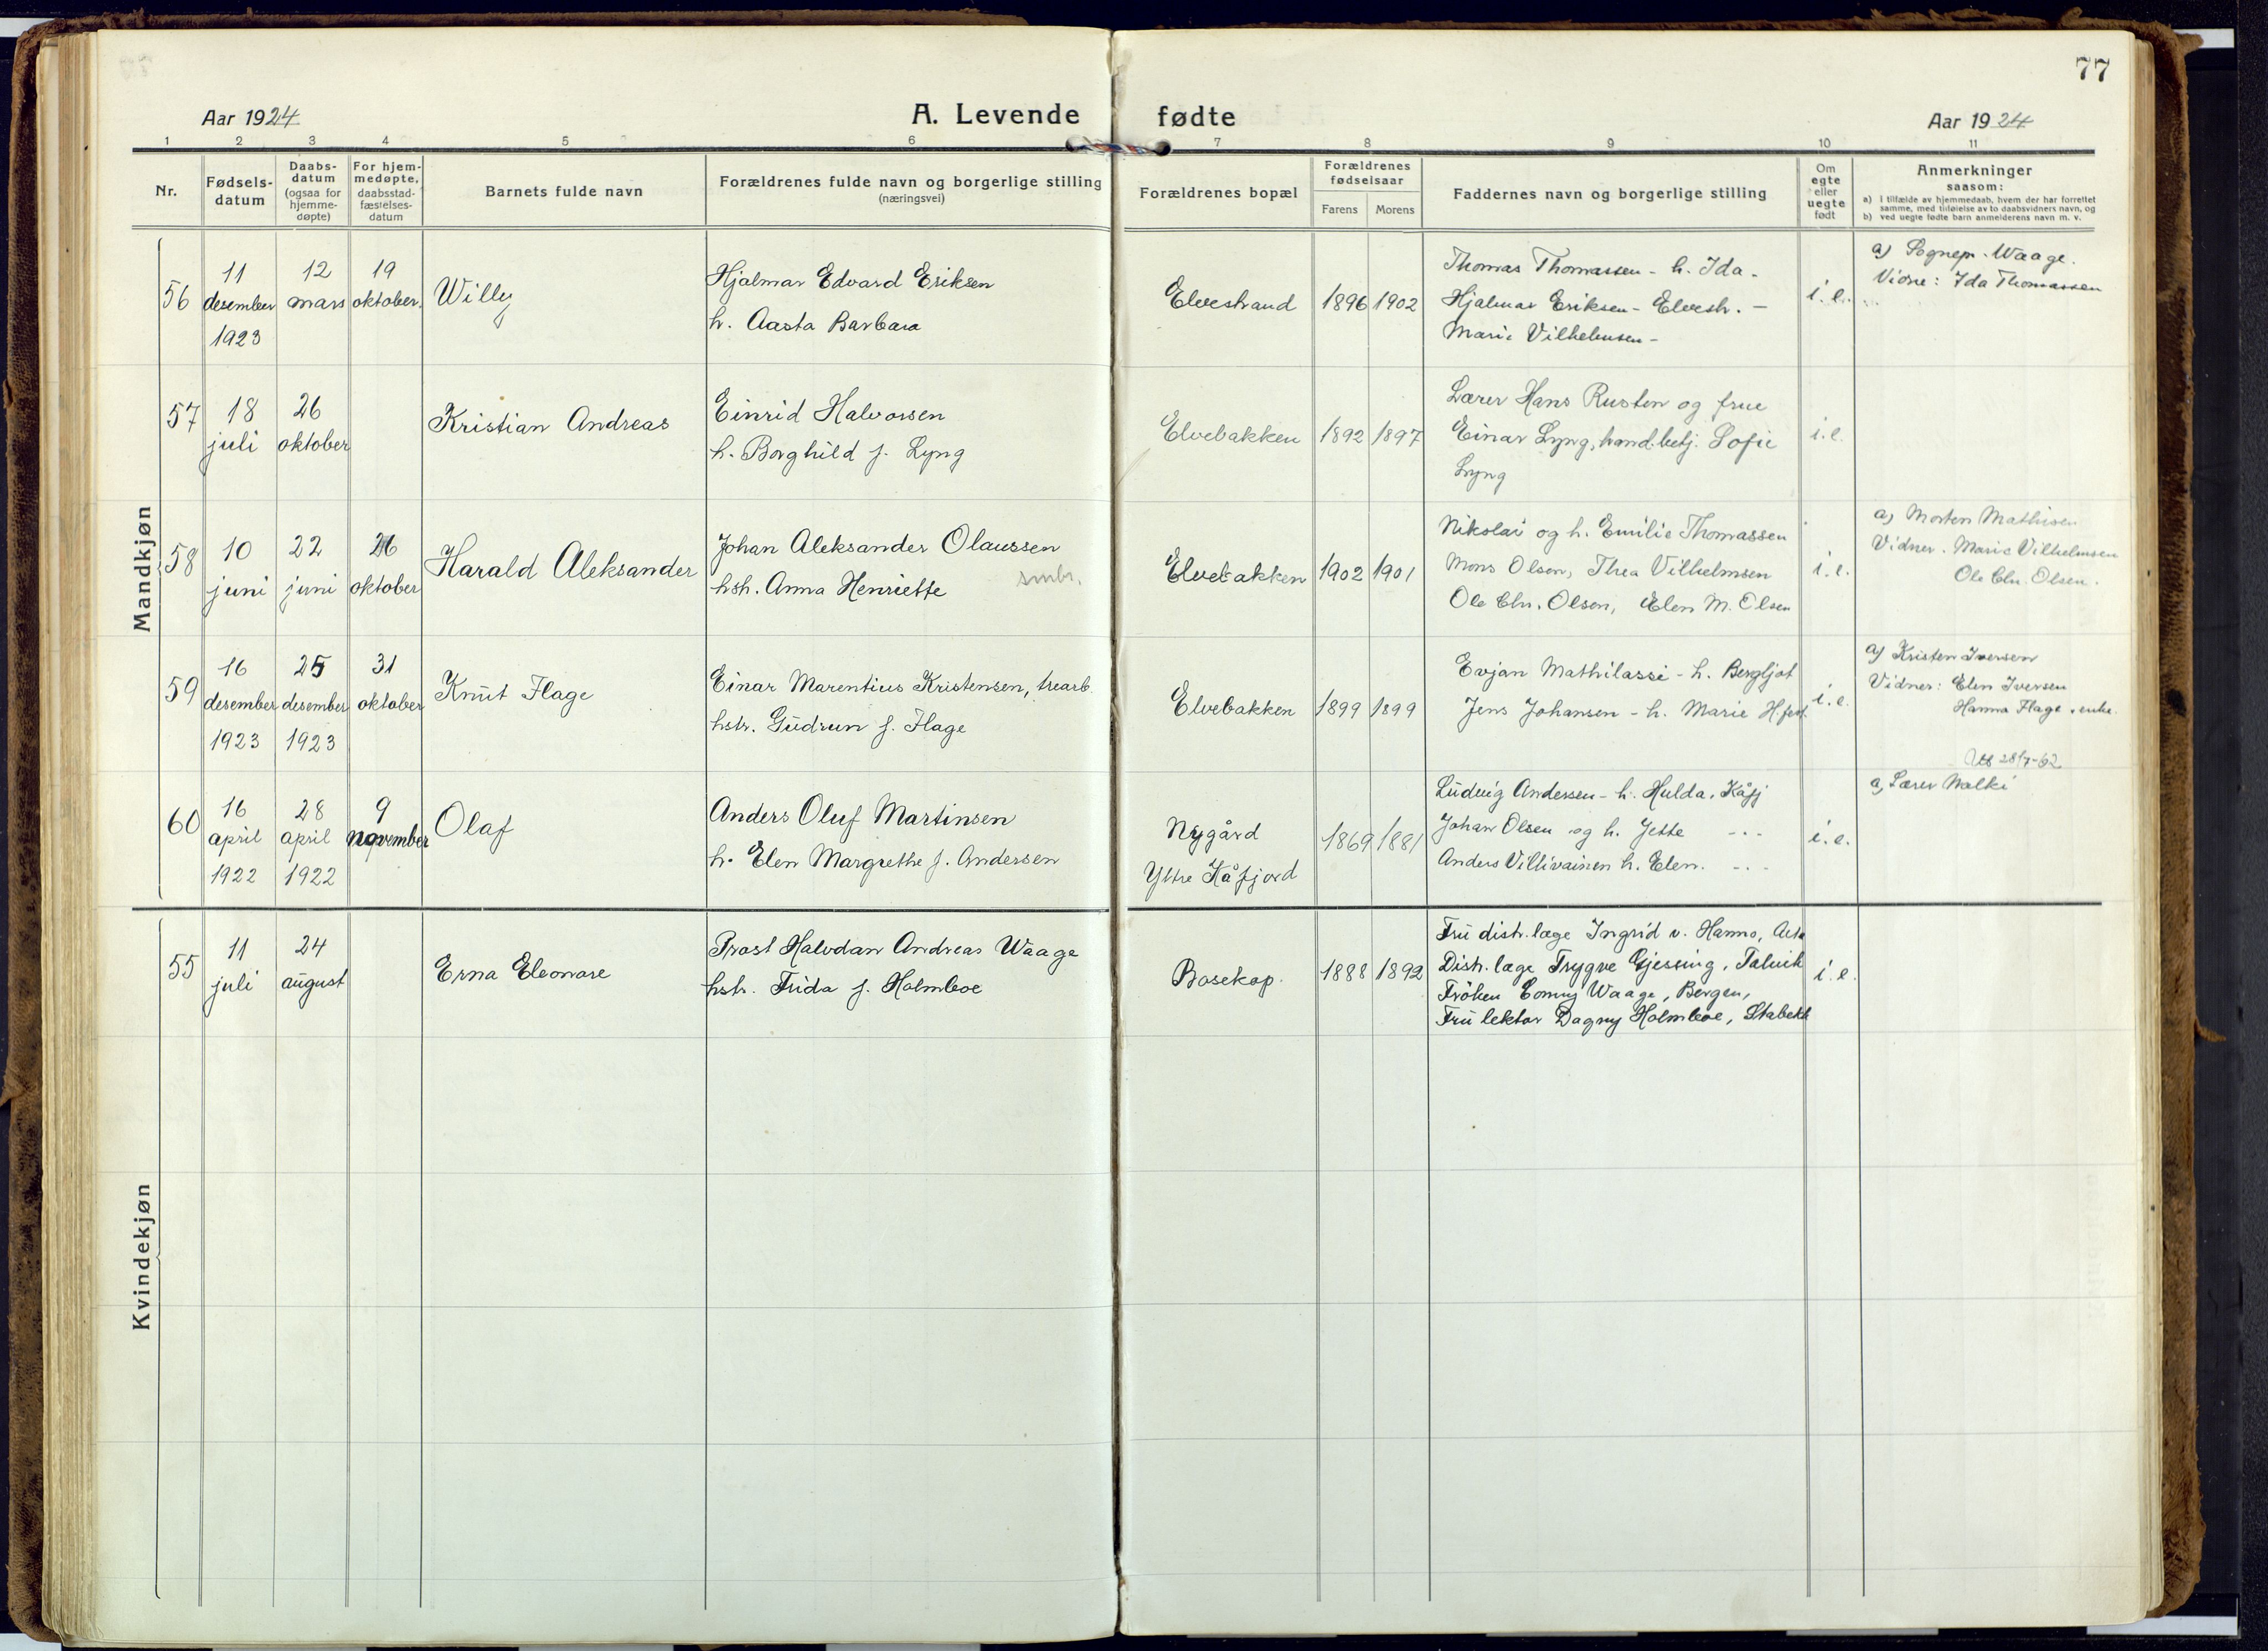 77
Aar 1924
A. Levende fødte
Aar 1924
1 2 3 4 5 6 7 8 9 10 11
Nr.
Fødsels-
datum
Daabs-
datum
(ogsaa for
hjemme-
døpte)
For hjem-
medøpte,
daabsstad-
fæstelses-
datum
Barnets fulde navn
Forældrenes fulde navn og borgerlige stilling
(næringsvei)
Forældrenes bopæl
Forældrenes
fødselsaar
Farens Morens
Faddernes navn og borgerlige stilling
Om
egte
eller
uegte
født
Anmerkninger
saasom:
a) i tilfælde av hjemmedaab, hvem der har forrettet
samme, med tilføielse av to daabsvidners navn, og
b) ved uegte fødte barn anmelderens navn m. v.
Mandkjøn
56
11
desember
1923
12
mars
19
oktober.
Willy
Hjalmar Edvard Eriksen
h. Aasta Barbara
Elvestrand
1896 1902
Thomas Thomassen - h. Ida -
Hjalmar Eriksen - Elvestr. -
Marie Vilhelmsen -
i. e.
a) Sognepr. Waage.
Vidne: Ida Thomassen
57
18
juli
26
oktober
Kristian Andreas
Einrid Halvorsen
h. Borghild f. Lyng
Elvebakken
1892 1897
Lærer Hans Rusten og frue
Einar Lyng, hand.betj. Sofie
Lyng
i. e.
58
10
juni
22
juni
26
oktober
Harald Aleksander
Johan Aleksander Olaussen
hstr. Anna Henriette
smbr.
Elvebakken
1902 1901
Nikolai og h. Emilie Thomassen
Mons Olsen, Thea Vilhelmsen
Ole Chr. Olsen, Elen M. Olsen
i. e.
a) Morten Mathisen
Vidner. Marie Vilhelmsen
Ole Chr. Olsen.
59
16
desember
1923
25
desember
1923
31
oktober
Knut Flage
Einar Marentius Kristensen, trearb.
hstr. Gudrun f. Flage
Elvebakken
1899 1899
Evjan Mathilassi - h. Bergljot
Jens Johansen - h. Marie
i. e.
a) Kristen Iversen
Vidner: Elen Iversen
Hanna Flage, enke.
60
16
april
1922
28
april
1922
9
november
Olaf
Anders Oluf Martinsen
h. Elen Margrethe f. Andersen
Nygård
Yttre Kåfjord
1869 1881
Ludvig Andersen - h. Hulda, Kåfj
Johan Olsen og h. Jette - - -
Anders Villivainen h. Elen. - - -
i. e.
28/7-62
a, Lærer Walki
Kvindekjøn
55
11
juli
24
august
Erna Eleonore
Prost Halvdan Andreas Waage
hstr. Frida f. Holmboe
Bosekop.
1888 1892
Fru distr.læge Ingrid v. Hanno,
Distr. læge Trygve Gjessing, Talvik
Frøken Conny Waage, Bergen,
Fru lektor Dagny Holmboe, Stabekk
i. e.